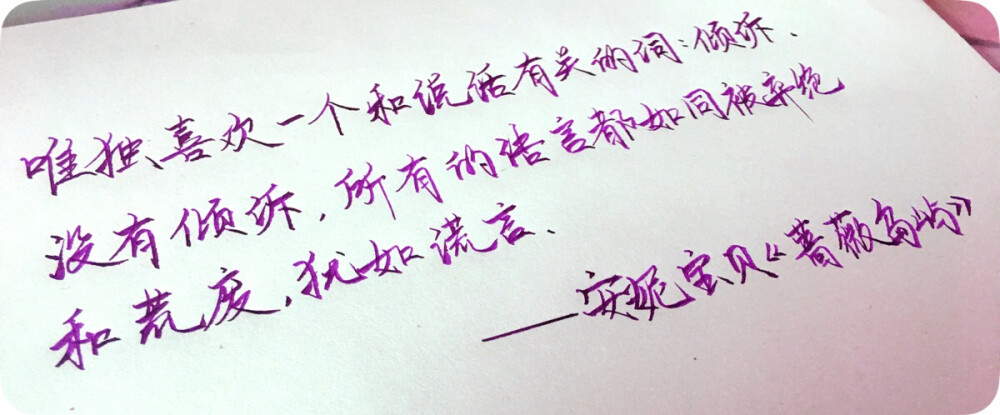 唯独喜欢一个和说话有关的词:倾诉.
没有倾诉,所有的语言都如同被弃绝
和荒废,犹如谎言.
——安妮宝贝《蔷薇岛屿》